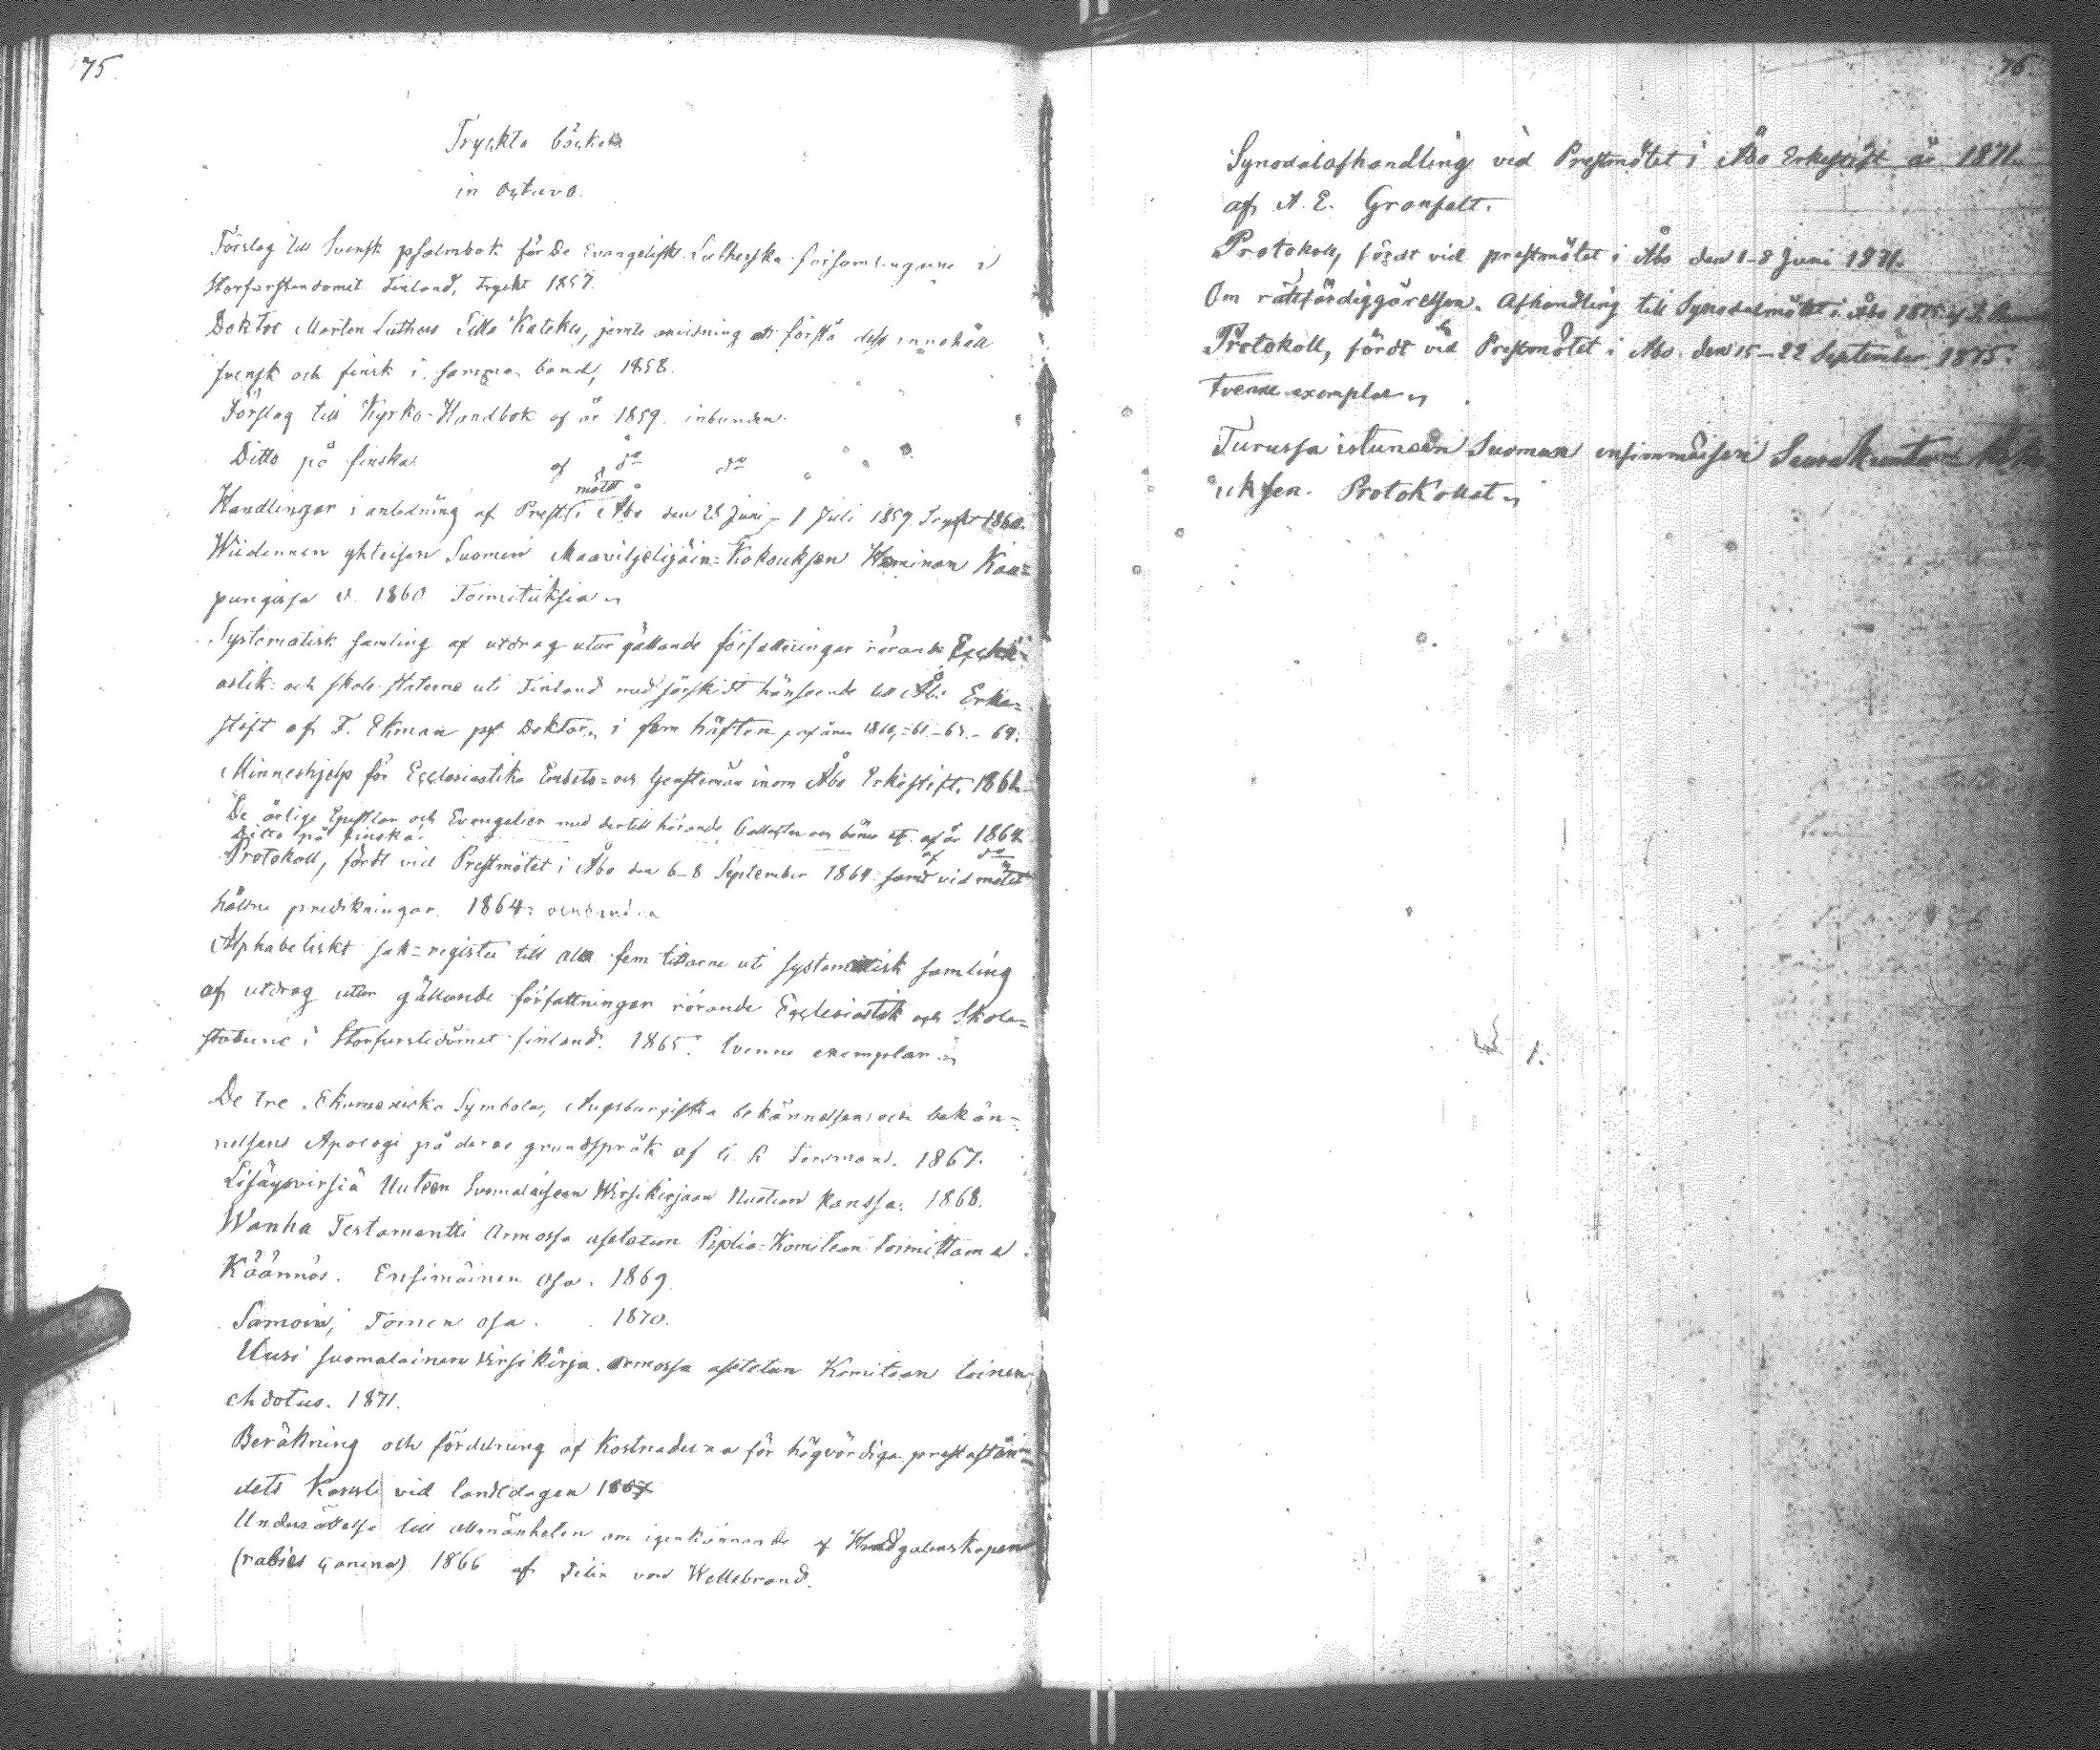 75.
Tryckta böcker
in octavo.
Förslag till Svensk psalmbok för De Evangelisk-Lutherska församlingarne i
Storfurstendömet Finland, Tryckt 1857.
Doktor Mårten Luthers Lilla Katekes, jemte anvisning att förstå dess innehåll
svensk och finsk i samma band, 1858.
Förslag till Kyrko-Handbok af år 1859. inbunden
Ditto på finska. af do do
Handlingar i anledning af Prestmötet i Åbo den 28 Juni - 1 Juli 1859 Tryckt 1860.
Wiidennen yhteisen Suomen Maaviljelijäin-Kokouksen Haminan Kau=
pungissa v. 1860 Toimituksia
Systematisk samling af utdrag utur gällande författningar rörande Ecclesi=
astik- och skole-staterne uti Finland med särskildt hänseende till Åbo Erke=
stift af F. Ekman Doktor, i fem häften
Minneshjelp för Ecclesiastika Embets- och tjenstemän inom Åbo Erkestift.
De årliga Epistlar och Evangelier med dertill hörande Collecter och böner af år 1864.
Ditto på finska. af do
Protokoll, fördt vid Prestmötet i Åbo den 6-8 September 1864 samt vid mötet
hållne predikningar. 1864.
Alphabetiskt sak=register till alla fem tidarne uti systematisk samling
af utdrag utur gällande författningar rörande Ecclesiastik och Skole=
staterne i Storfurstedömet finland. 1865. tvenne exemplar
De tre Ekumeniska Symbola, Augsburgiska bekännelsen och bekän=
nelsens Apologi på deras grundspråk af 1867.
Lisäysvirsiä Uuteen Suomalaiseen Wirsikirjaan Nuottein kanssa. 1868.
Wanha Testamentti Armossa asetetun Piplia-Komitean toimittama
Käännös. Ensimäinen Osa. 1869.
Samoin, Toinen osa. 1870.
Uusi suomalainen virsikirja. armossa asetetun Komitean toinen
ehdotus. 1871.
Beräkning och fördelning af Kostnaderna för högvördiga prestastån=
dets Kansli vid landtdagen 1867
Underrättelse till allmänheten om igenkännande af Hundgalenskapen
(rabies canina) 1866 af Felix von Willebrand.
76.
Synodalafhandling vid Prestmötet i Åbo Erkestift år 1871.
af A. E. Granfelt.
Protokoll, fördt vid prestmötet i Åbo den 1-8 Juni 1871.
Om rättfärdiggörelsen. Afhandling till Synodalmötet i Åbo 1875
Protokoll, fördt vid Prestmötet i Åbo. den 15-22 September 1875.
tvenne exemplar
Turussa istuneen Suomen ensimmäisen Seurakuntain
uksen. Protokollat
1.